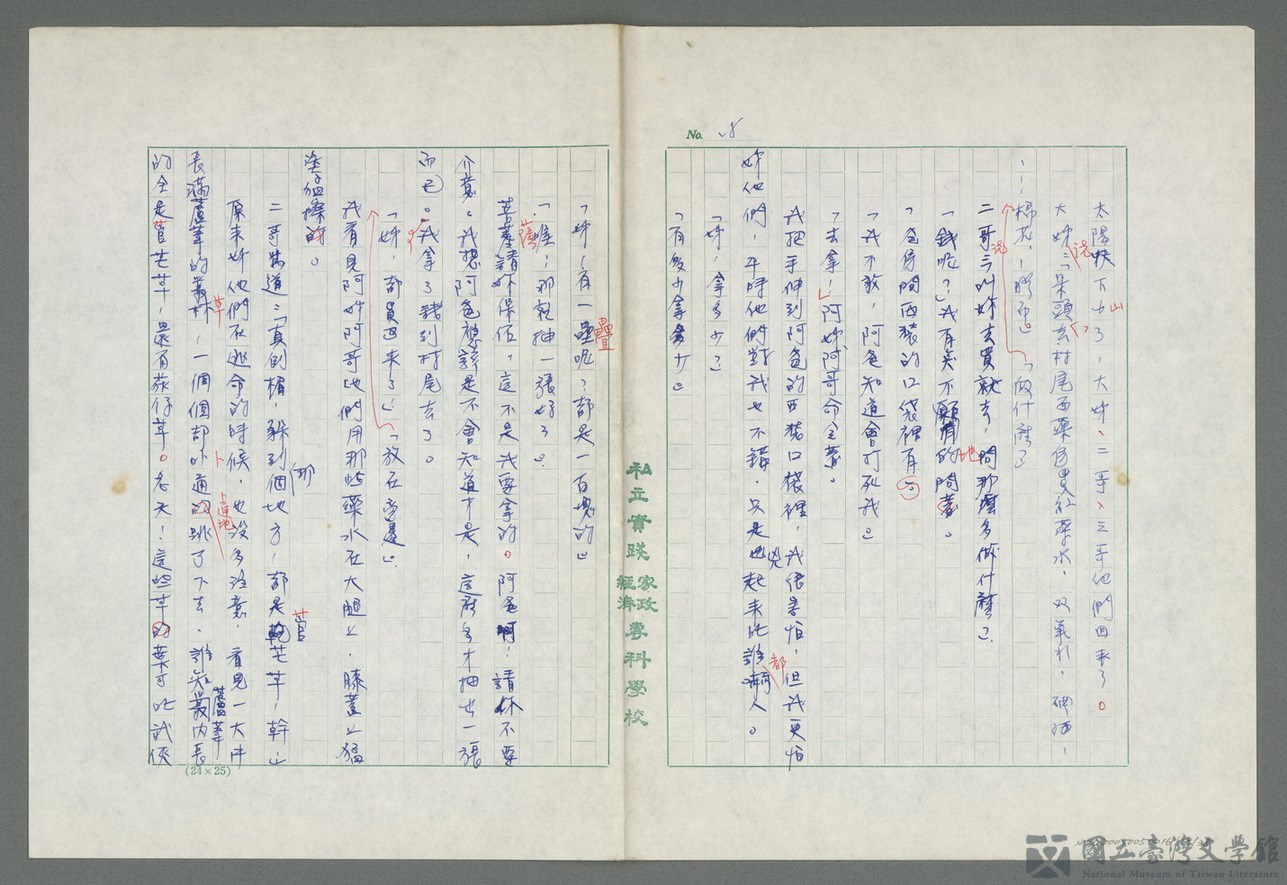 No. 15
太陽快下山了，大姊、二哥、三哥他們回來了。
大姊說：「呆頭去村尾西藥房買紅藥水、双氧水、碘酒、
棉花、膠布。」「做什麼？」
二哥說叫妳去買就去！問那麼多做什麼？
「錢呢？」我有負不願的地問。
「去房間西裝的口袋裡有。」
「我不敢，阿爸知道會打死我。」
「去拿！」阿姊阿哥命令著。
我把手伸到阿爸的西裝口袋裡，我很害怕，但我更怕
姊他們，平時他們對我也不錯，只是兇起來比誰都兇人。
「姊，拿多少？」
「有多少拿多少。」
私立實踐家政經濟專科學校
「姊！有一疊呢？都是一百塊的。」
「喔！那就抽一張好了。」
菩薩請妳保佑，這不是我要拿的。阿爸啊！請你不要
介意。我想阿爸應該是不會知道才是，這麼多才抽出一張
而已。我拿了錢到村尾去了。
「姊，都買回來了！」「放在旁邊。」
我看見阿姊阿哥他們用那些藥水在大腿上，膝蓋上猛
塗猛擦。
二哥嘴道：「真倒楣，躲到那個地方，都是菅芒草，幹！」
原來姊他們在逃命的時候，也沒多注意，看見一大片
長滿蘆葦的草叢，一個個卜通卜通地跳了下去，誰知最內長
的全是菅芒草，還有蔴仔草。老天！這些草葉可比武俠
(24×25)
國立臺灣文學館
National Museum of Taiwan Literature